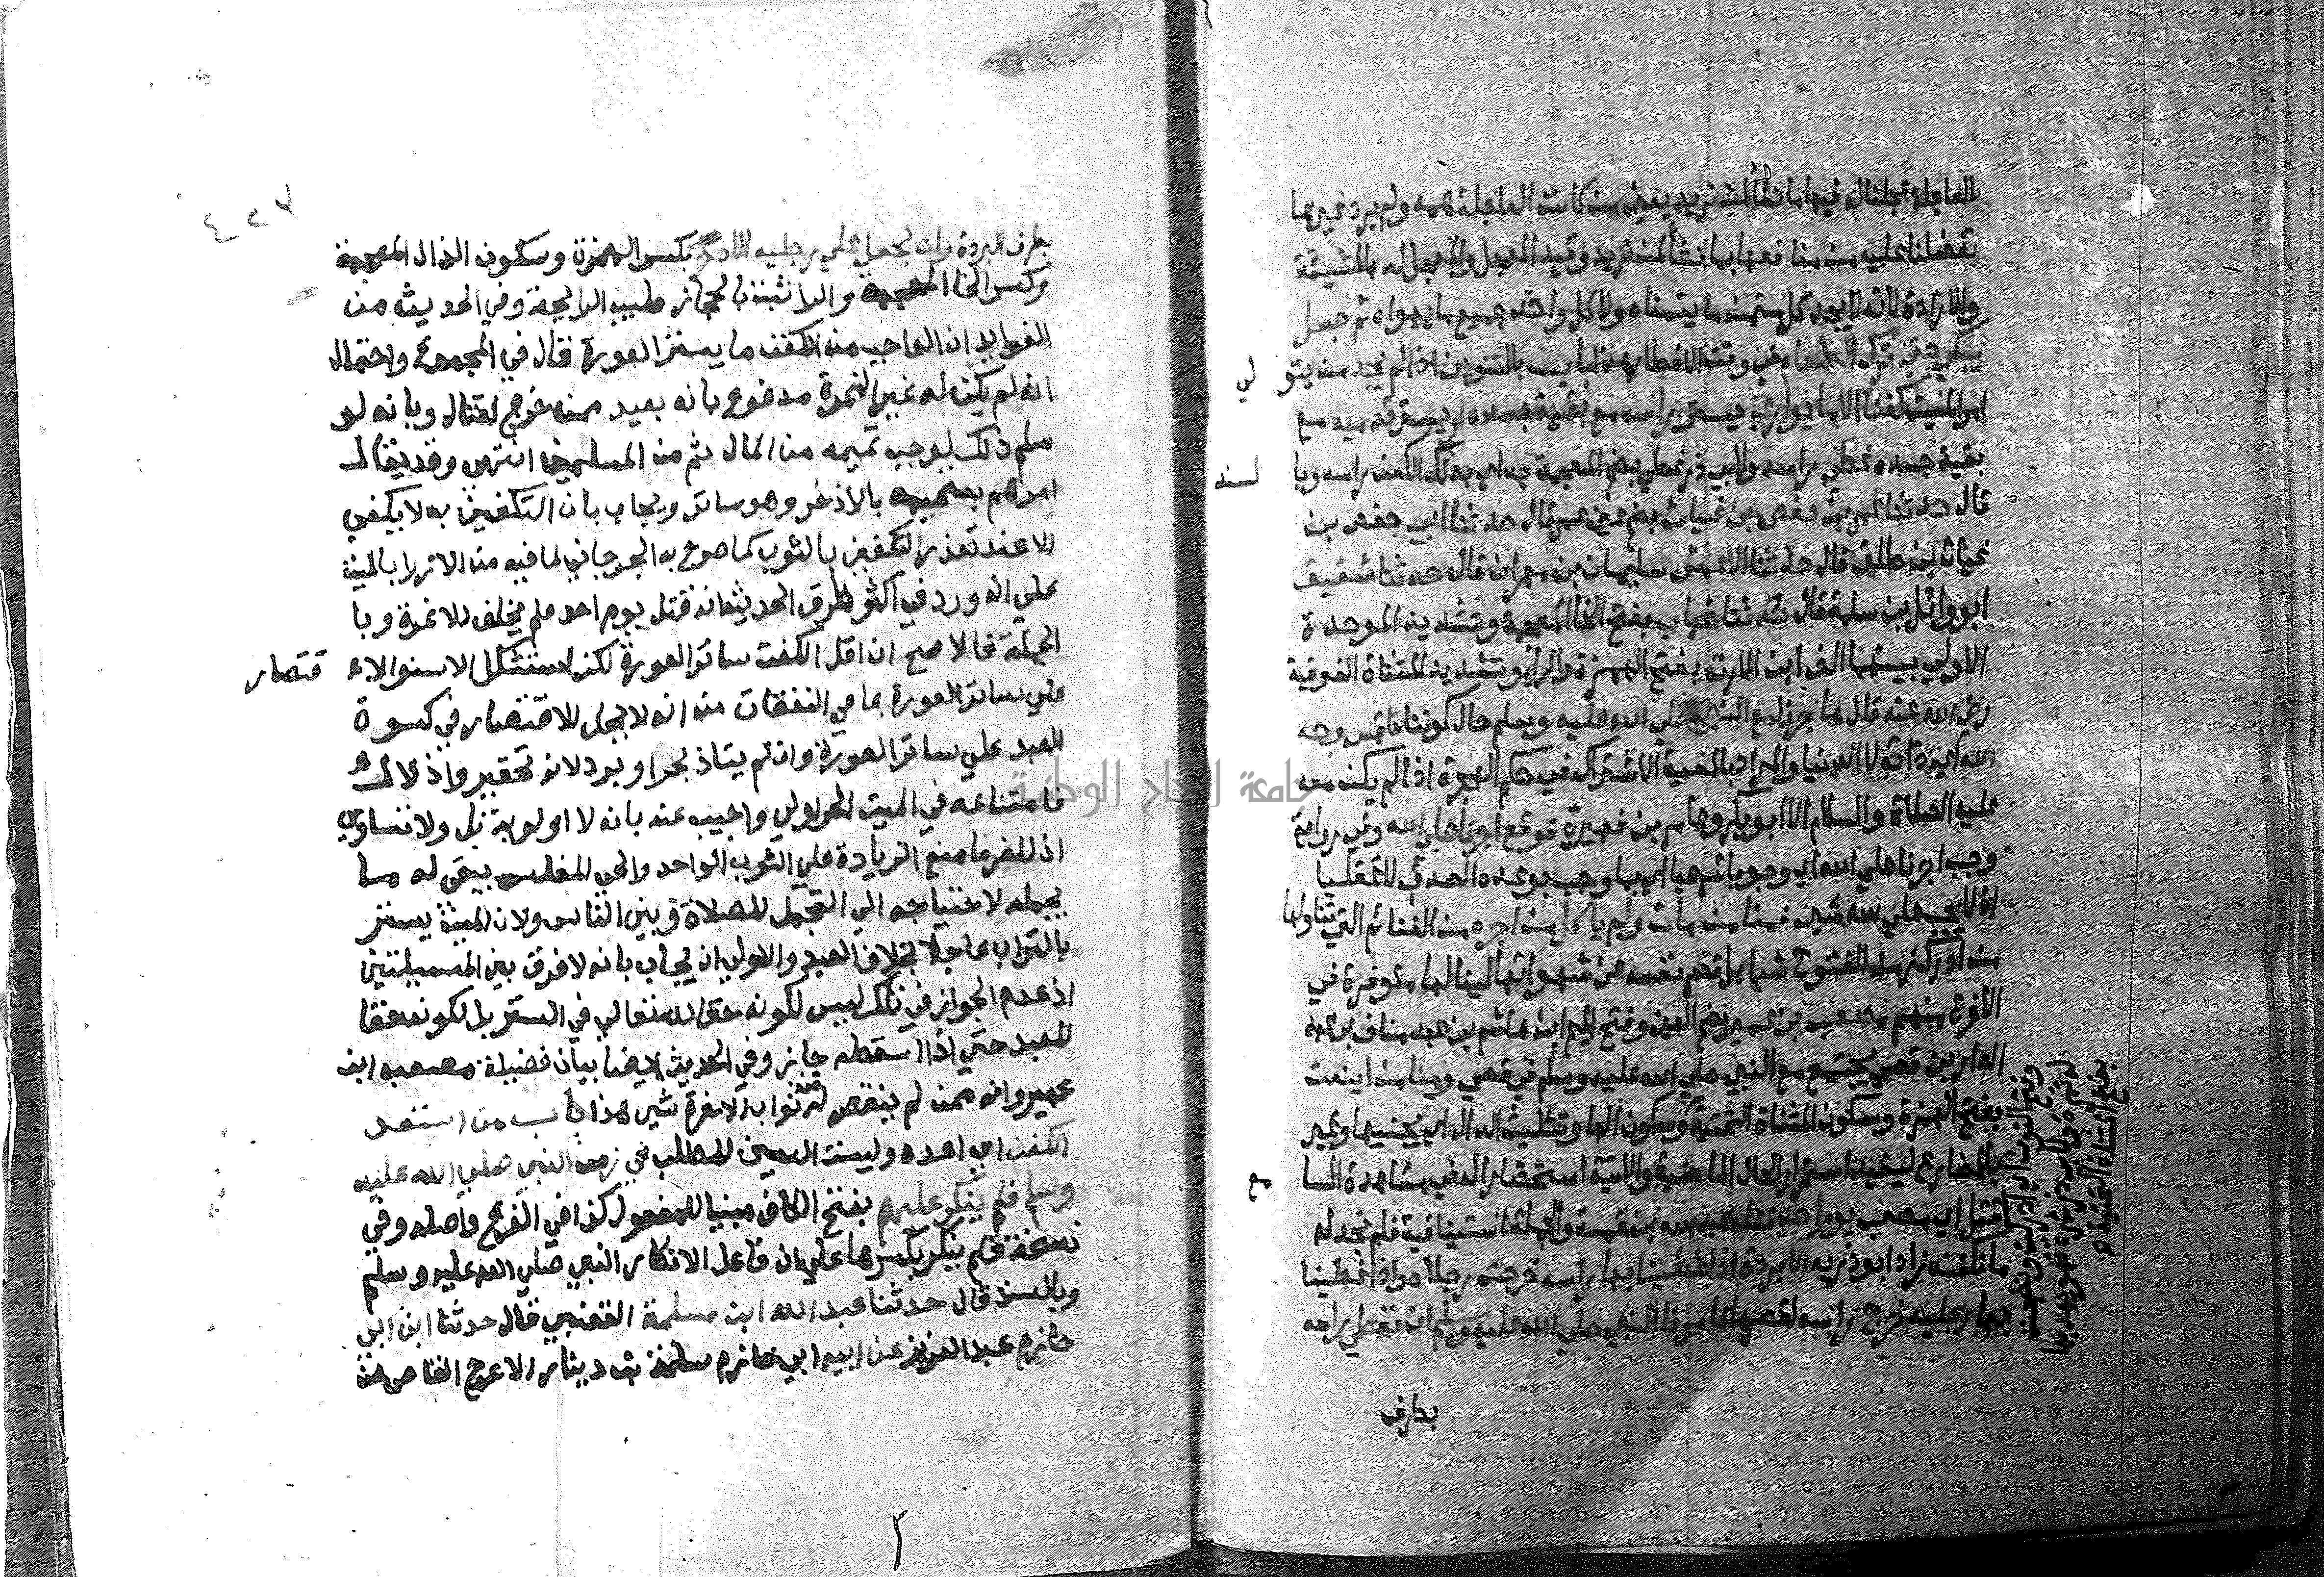 العاجلة عجلنا له فيها ما نشا لمن نريد يعني من كانت العاجلة همه ولم يرد غيرها
تفضلنا عليه من منافعها بما نشا لمن نريد وقيد المعجل والمعجل له بالمشيئة
والارادة لانه لا يجد كل متمن ما يتمناه ولا كل واحد جميع ما يهواه ثم جعل
يبكي حتى ترك الطعام في وقت الافطار هذا باب بالتنوين اذا لم يجد من يتو لي
امر الميت كفنا الا ما يواري يستر راسه مع بقية جسده او يستر قدميه مع
بقية جسده غطي راسه ولابي ذر غطي بضم المعجمة به اي بذلك الكفن راسه وبا لسند
قال حدثنا عمر بن حفص بن غياث بضم عين عمر قال حدثنا ابي حفص بن
غياث بن طلق قال حدثنا الاعمش سليمان بن مهران قال حدثنا شقيق
ابو وائل بن سلمة قال حدثنا خباب بفتح الخا المعجمة وتشديد الموحدة
الاولي بينهما الف ابن الارت بفتح الهمزة والرا وتشديد المثناة الفوقية
رضي الله عنه قال هاجرنا مع النبي صلي الله عليه وسلم حال كوننا نلتمس وجه
الله اي ذاته لا الدنيا والمراد بالمعية الاشتراك في حكم الهجرة اذا لم يكن معه
عليه الصلاة والسلام الا ابو بكر وعامر بن فهيرة فوقع اجرنا علي الله وفي رواية
وجب اجرنا علي الله اي وجوبا شرعيا اي بما وجب بوعده الصدق لا عقليا
اذ لا يجب علي الله شي فمنا من مات ولم ياكل من اجره من الغنائم التي تناولها
من ادرك زمن الفتوح شيا بل قصر نفسه عن شهواتها لينالها متوفرة في
الاخرة منهم مصعب بن عمير بضم العين وفتح الميم ابن هاشم بن عبد مناف بن عبد
الدار بن قصي يجتمع مع النبي صلي الله عليه وسلم في قصي ومنا من اينعت
بفتح الهمزة وسكون المثناة التحتية
بالمضارع ليفيد استمرار الحال الماضية والاتية استحضارا له في مشاهدة السا مع
قتل اي مصعب يوم احد قتله عبد الله بن قمية والجملة استينافية فلم نجد له
ما نكفنه زاد ابو ذر به الا بردة اذا غطينا بها راسه خرجت رجلاه واذا غطينا
بها رجليه خرج راسه لقصرها فامرنا النبي صلي الله عليه وسلم ان نغطي راسه
بطرف
بطرف البردة وان نجعل علي رجليه الاذخر بكسر الهمزة وسكون الذال المعجمة
وكسر الخا المعجمة والرا نبت بالحجاز طيب الرايحة وفي الحديث من
الفوايد ان الواجب من الكفن ما يستر العورة قال في المجموع واحتمال
انه لم يكن له غير النمرة مدفوع بانه بعيد ممن خرج لقتال وبانه لو
سلم ذلك لوجب تتميمه من المال ثم من المسلمين انتهي وقد يقال
امرهم بتتميمه بالاذخر وهو ساتر ويجاب بان التكفين به لا يكفي
الا عند تعذر التكفين بالثوب كما صرح به الجرجاني لما فيه من الازرا بالميت
علي انه ورد في اكثر طرق الحديث انه قتل يوم احد فلم يخلف الا نمرة وبا
الجملة فالاصح ان اقل الكفن ساتر العورة لكن استشكل الاسنوي الا قتصار
علي ساتر العورة بما في النفقات من انه لا يحل الاقتصار في كسوة
العبد علي ساتر العورة وان لم يتاذ بحر او برد لانه تحقير واذلال
فامتناعه في الميت الحر اولي واجيب عنه بانه لا اولوية بل ولا تساوي
اذ للغرما منع الزيادة علي الثوب الواحد والحي المفلس يبقي له ما
يجمله لاحتياجه الي التجمل للصلاة وبين الناس ولان الميت يستتر
بالتراب عاجلا بخلاف العبد والاولي ان يجاب بانه لا فرق بين المسيلتين
اذ عدم الجواز في تلك ليس لكونه حقا لله تعالي في الستر بل لكونه حقا
للعبد حتي اذا اسقطه جاز وفي الحديث ايضا بيان فضيلة مصعب ابن
عمير وانه ممن لم ينقص له من ثواب الاخرة شي هذا باب من استعد
الكفن اي اعده وليست السين للطلب في زمن النبي صلي الله عليه
وسلم فلم ينكر عليهم بفتح الكاف مبنيا للمفعول كذا في الفرع واصله وفي
نسخة فلم ينكر بكسرها علي ان فاعل الانكار النبي صلي الله عليه وسلم
وبالسند قال حدثنا عبد الله ابن مسلمة القعنبي قال حدثنا ابن ابي
حازم عبد العزيز عن ابيه ابي حازم سلمة بن دينار الاعرج القاص من
جامعة النجاح الوطنية